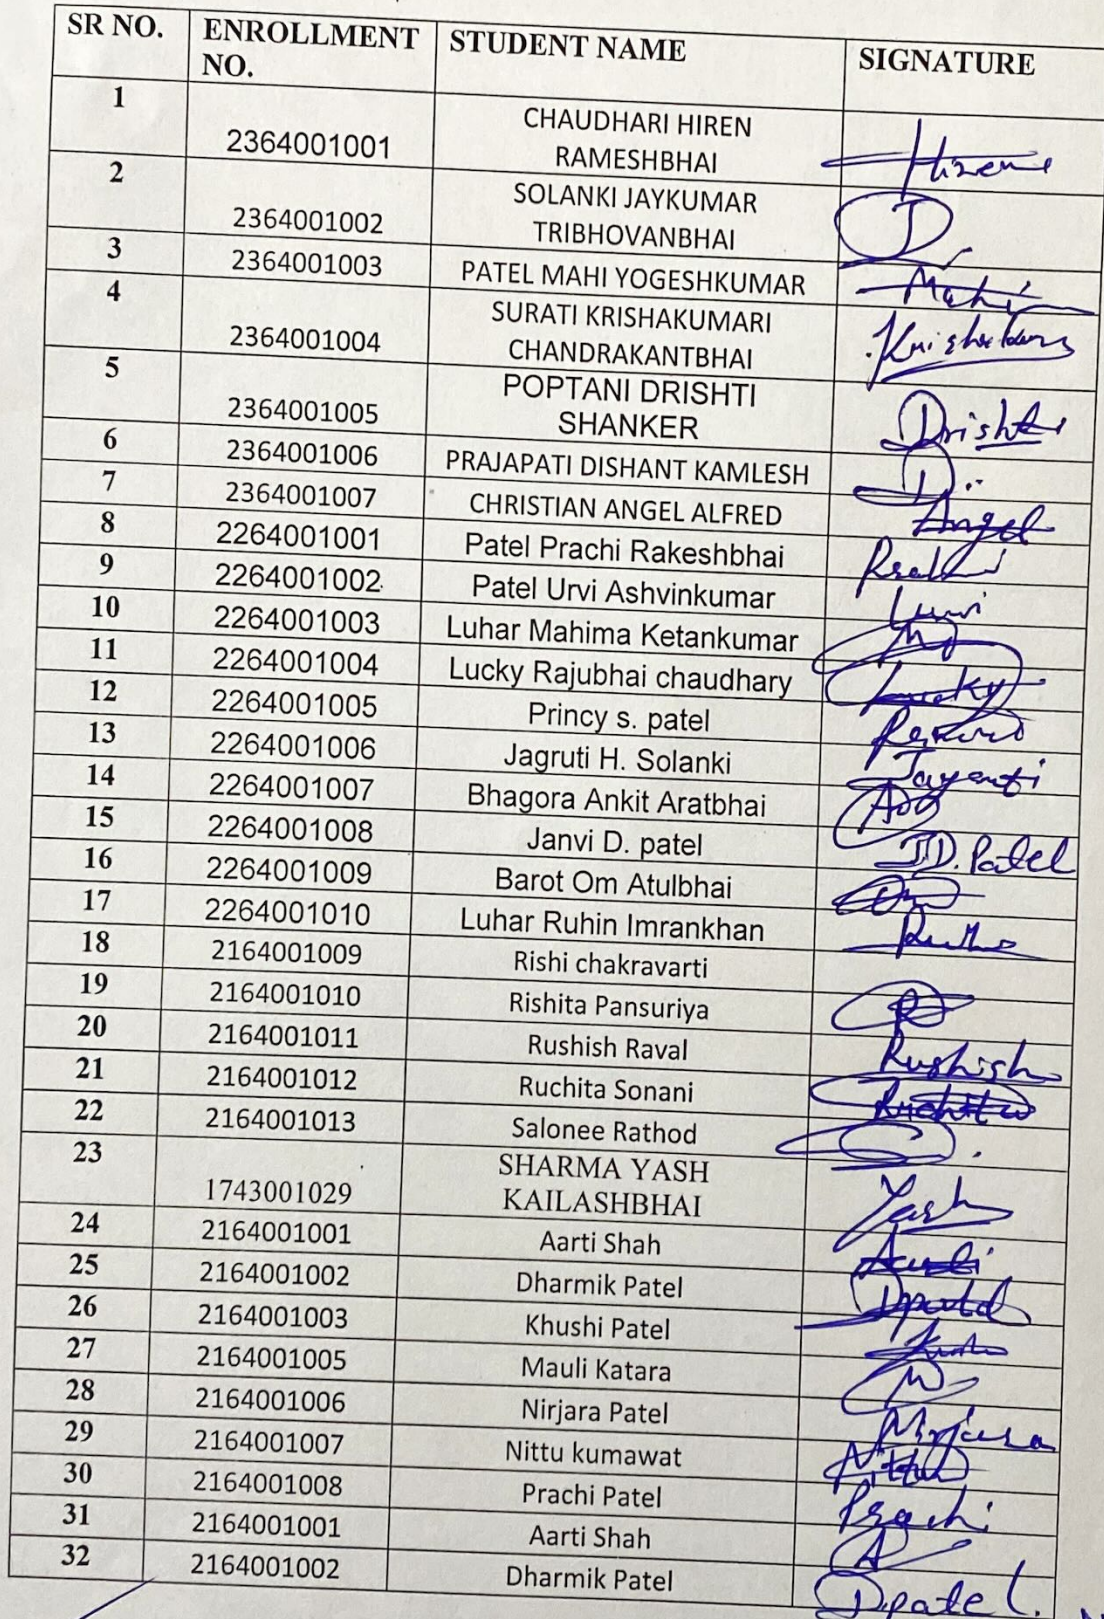 SR NO. ENROLLMENT NO. STUDENT NAME SIGNATURE
1 2364001001 CHAUDHARI HIREN RAMESHBHAI Hiren
2 2364001002 SOLANKI JAYKUMAR TRIBHOVANBHAI J
3 2364001003 PATEL MAHI YOGESHKUMAR Mahi
4 2364001004 SURATI KRISHAKUMARI CHANDRAKANTBHAI
5 2364001005 POPTANI DRISHTI SHANKER Drishti
6 2364001006 PRAJAPATI DISHANT KAMLESH
7 2364001007 CHRISTIAN ANGEL ALFRED Angel
8 2264001001 Patel Prachi Rakeshbhai
9 2264001002 Patel Urvi Ashvinkumar Urvi
10 2264001003 Luhar Mahima Ketankumar
11 2264001004 Lucky Rajubhai chaudhary Lucky
12 2264001005 Princy s. patel
13 2264001006 Jagruti H. Solanki
14 2264001007 Bhagora Ankit Aratbhai
15 2264001008 Janvi D. patel JD. Patel
16 2264001009 Barot Om Atulbhai Om
17 2264001010 Luhar Ruhin Imrankhan
18 2164001009 Rishi chakravarti
19 2164001010 Rishita Pansuriya R
20 2164001011 Rushish Raval Rushish
21 2164001012 Ruchita Sonani Ruchita
22 2164001013 Salonee Rathod
23 1743001029 SHARMA YASH KAILASHBHAI Yash
24 2164001001 Aarti Shah Aarti
25 2164001002 Dharmik Patel Dpatel
26 2164001003 Khushi Patel
27 2164001005 Mauli Katara M
28 2164001006 Nirjara Patel Nirjara
29 2164001007 Nittu kumawat Nittu
30 2164001008 Prachi Patel Prachi
31 2164001001 Aarti Shah A
32 2164001002 Dharmik Patel Dpatel.